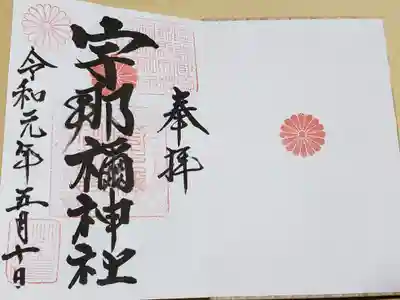 奉拝
宇那禰神社
令和元年五月十日